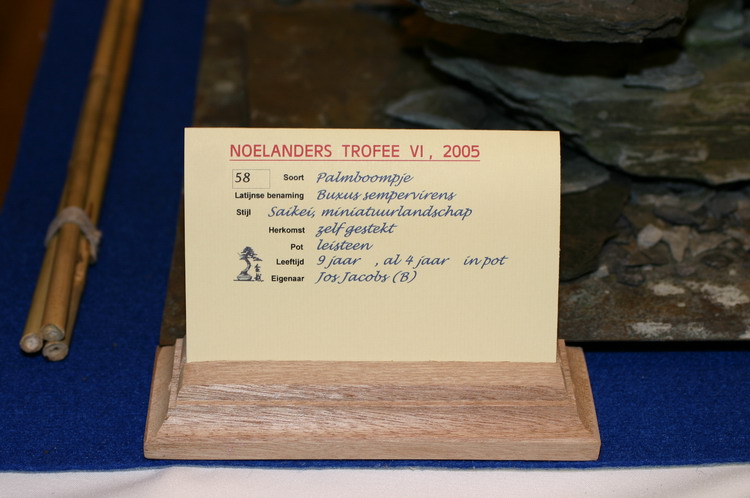 NOELANDERS TROFEE VI, 2005
58 Soort Palmboompje
Latijnse benaming Buxus sempervirens
Stijl Saikei, miniatuurlandschap
Herkomst zelf gestekt
Pot leisteen
Leeftijd 9 jaar , al 4 jaar in pot
Eigenaar Jos Jacobs (B)